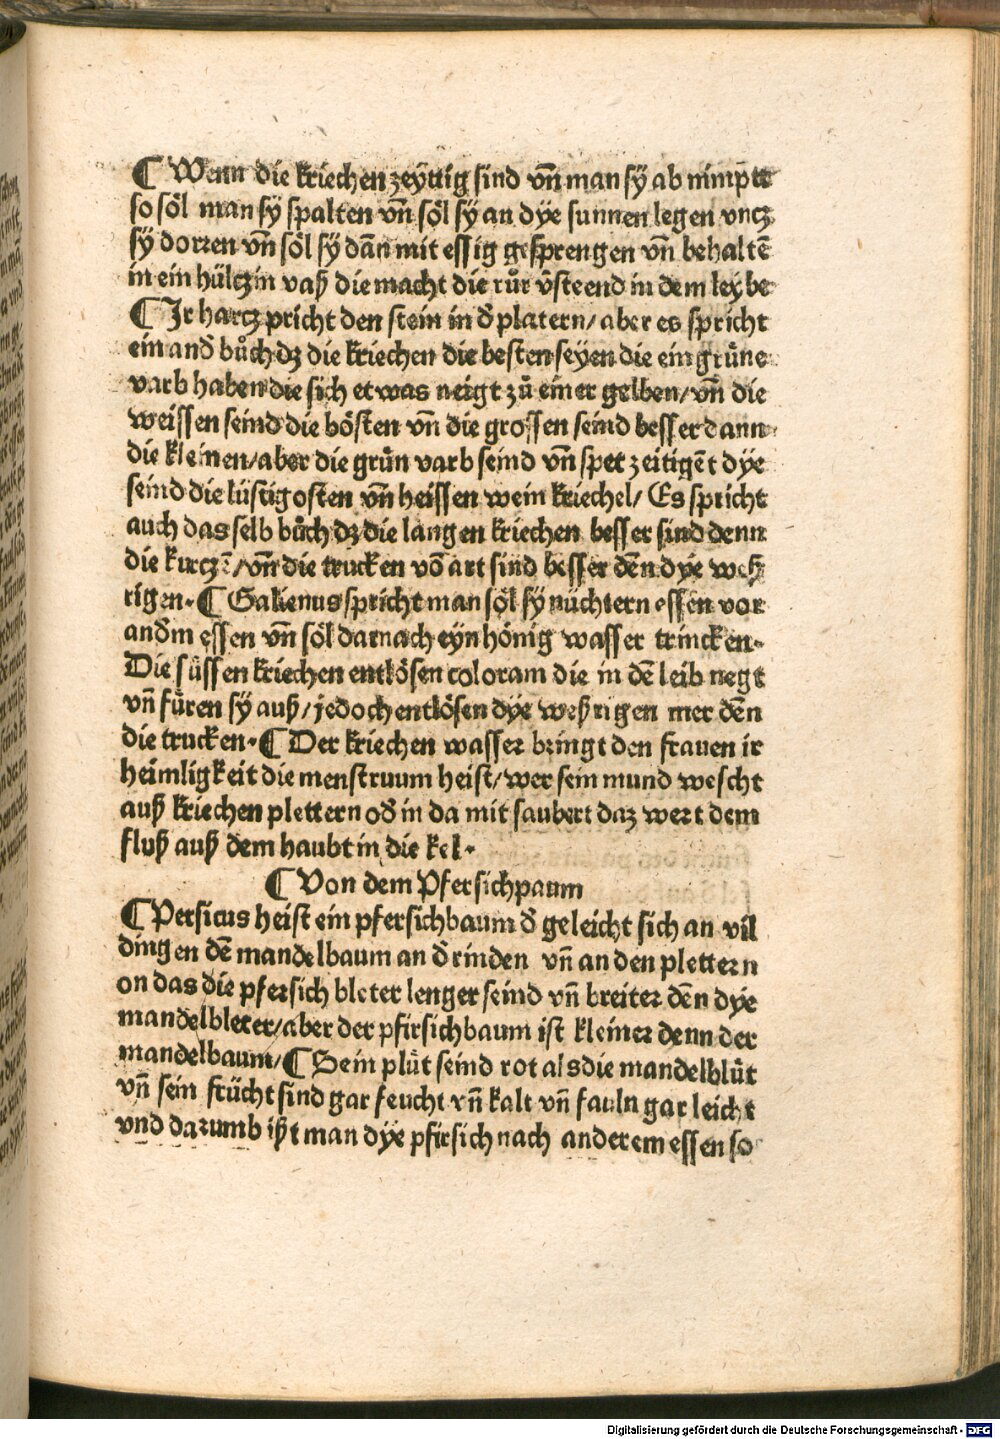 ¶ Wenn die kriechen zeyttig sind vn̄ man sÿ ab nimp̄tt
so sol̈ man sÿ spalten vn̄ sol̈ sÿ an dÿe sunnen legen vncz
sÿ dorren vn̄ sol̈ sÿ dān mit essig gesprengen vn̄ behaltē
in ein hülczin vaß die macht die růr v̄steend in dem leybe
¶ Ir harcz pricht den stein in d̄ platern/ aber es spricht
ein and̄ bůch dz die kriechen die besten seyen die ein grüne
varb haben die sich etwas neigt zů einer gelben/ vn̄ die
weissen seind die bösten vn̄ die grossen seind besser dann
die kleinen/ aber die grün varb seind vn̄ spet zeitigēt dÿe
seind die lüstigosten vn̄ heissen wein kriechel/ Es spricht
auch das selb bůch dz die langen kriechen besser sind denn
die kurczē/ vn̄ die trucken vō art sind besser dēn dÿe weß
rigen. ¶ Galienus spricht man söl sÿ nüchtern essen vor
and̄m essen vn̄ söl darnach eyn hönig wasser trincken.
Die süssen kriechen entlösen coloram die in dē leib negt
vn̄ füren sÿ auß/ jedoch entlösen dÿe weßrigen mer dēn
die trucken. ¶ Der kriechen wasser bringt den frauen ir
heimligkeit die menstruum heist/ wer sein mund wescht
auß kriechen plettern od̄ in da mit saubert daz wert dem
fluß auß dem haubt in die kel.
¶ Von dem Pfersichpaum
¶ Persicus heist ein pfersichbaum d̄ geleicht sich an vil
dingen dē mandelbaum an d̄ rinden vn̄ an den plettern
on das die pfersich bleter lenger seind vn̄ breiter dēn dÿe
mandelbleter/ aber der pfirsichbaum ist kleiner denn der
mandelbaum/ ¶ Sein plüt seind rot als die mandelblüt
vn̄ sein frücht sind gar feucht vn̄ kalt vn̄ fauln gar leicht
vnd darumb ißt man dÿe pfirsich nach anderem essen so
Digitalisierung gefördert durch die Deutsche Forschungsgemeinschaft - DFG